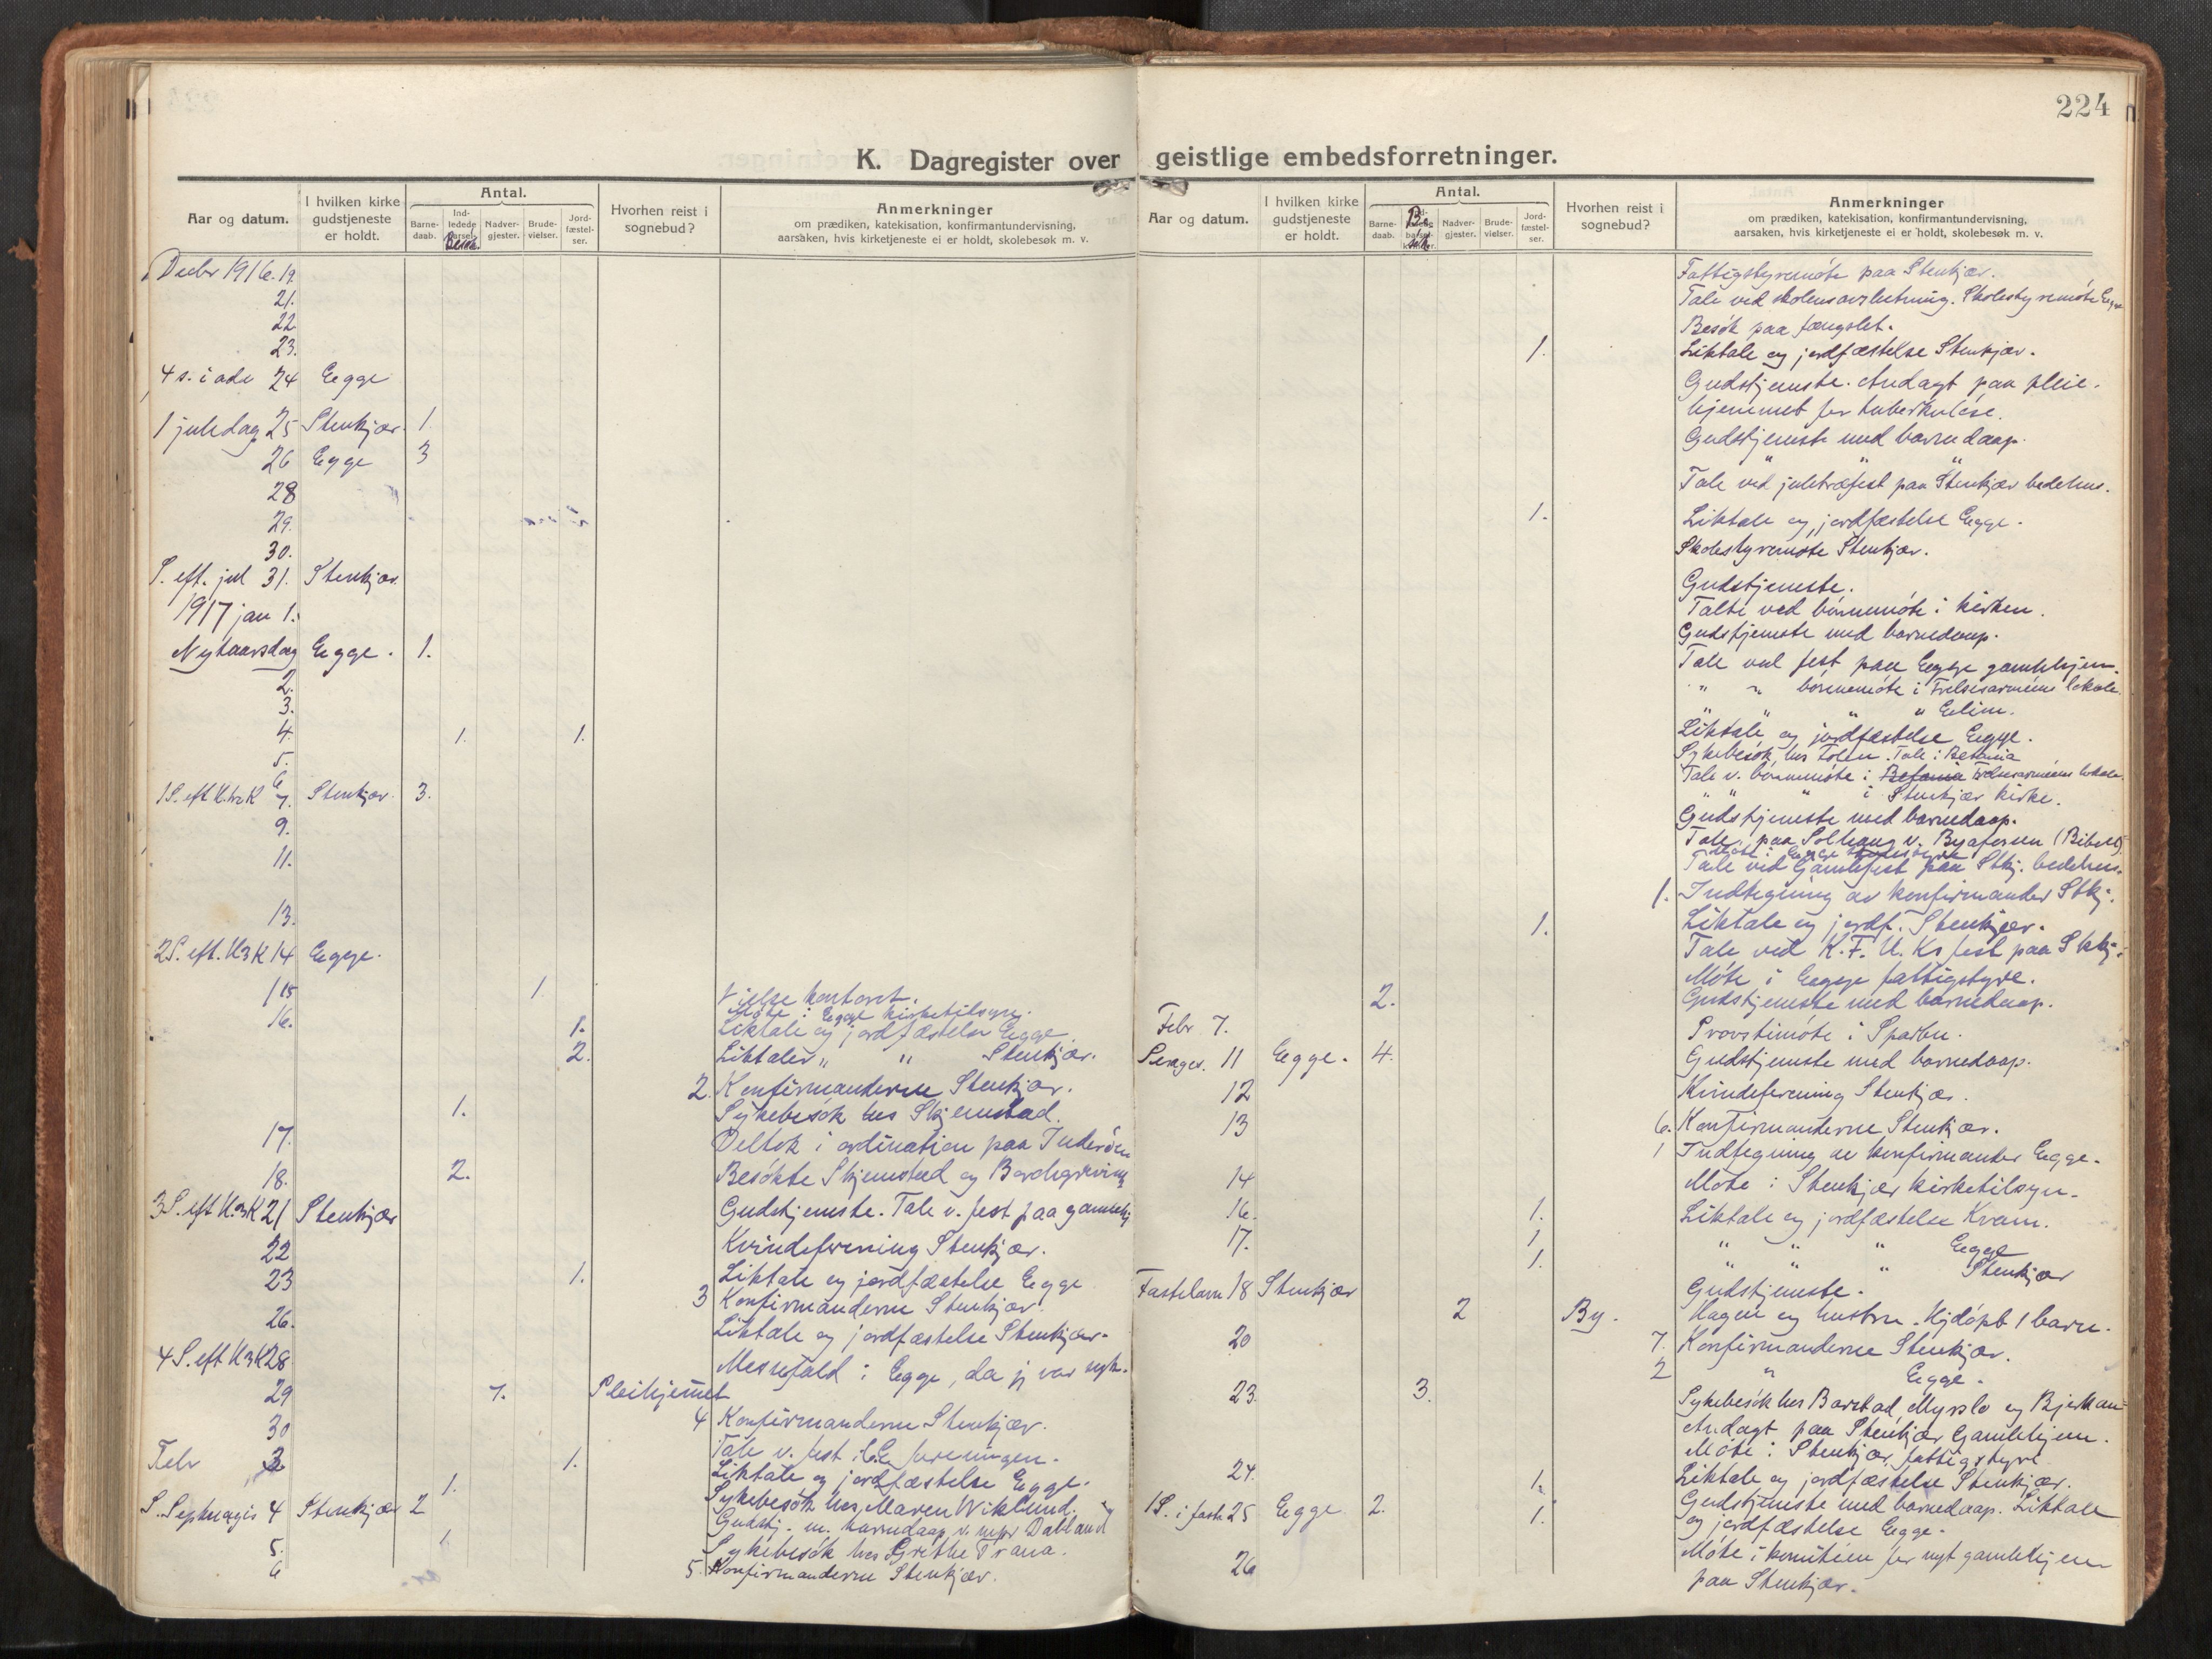 224
K. Dagregister over geistlige embedsforretninger.
Aar og datum.
I hvilken kirke gudstjeneste er holdt.
Antal.
Barne-daab.
Ind-ledede barsel-
Besøk
Nadver-gjester.
Brude-vielser.
Jord-fæstel-ser.
Hvorhen reist i sognebud?
Anmerkninger
om prædiken, katekisation, konfirmantundervisning,
aarsaken, hvis kirketjeneste ei er holdt, skolebesøk m. v.
Decbr 1916. 19.
21.
22
23.
4 s. i adv 24 Egge
1 juledag 25 Stenkjær. 1.
26 Egge 3
28
29.
30.
S. eft. jul 31. Stenkjær.
1917 jan 1.
Nytaarsdag Egge. 1.
2.
3.
4. 1. 1.
5.
6
1 S. eft H.3.K 7. Stenkjær. 3.
9.
11.
13.
2 S. eft. H3K 14 Egge.
15 1 Vielse kontoret.
Møte i Egge kirketilsyn.
16. 1. Liktale og jordfæstelse Egge
2. Liktaler " " Stenkjær.
2. Konfirmanderne Stenkjær.
1. Sykebesøk hos Skjemstad.
17. Deltok i ordination paa Inderøen
18. 2. Besøkte Skjemstad og
3 S. eft H.3K 21 Stenkjær Gudstjeneste. Tale v. fest paa gamlehj
22 Kvindeforening Stenkjær.
23 1. Liktale og jordfæstelse Egge
3 Konfirmanderne Stenkjær.
26. Liktale og jordfæstelse Stenkjær.
4 S. eft H3K 28. Messefald i Egge, da jeg var syk.
29 7. Pleihjemmet
30 4 Konfirmanderne Stenkjær.
Tale v. fest i foreningen.
Febr 3 1. Liktale og jordfæstelse Egge.
1. Sykebesøk hos Maren Wiklund.
S. Septuagis 4 Stenkjær 2 Gudstj. m. barnedaap v.
5. 1 Sykebesøk hos Grethe Trana.
6 5. Konfirmanderne Stenkjær.
Aar og datum.
I hvilken kirke gudstjeneste er holdt.
Antal.
Barne-daab.
Besøk
Nadver-gjester.
Brude-vielser.
Jord-fæstel-ser.
Hvorhen reist i sognebud?
Anmerkninger
om prædiken, katekisation, konfirmantundervisning,
aarsaken, hvis kirketjeneste ei er holdt, skolebesøk m. v.
Fattigstyremøte paa Stenkjær.
Tale ved skolens avslutning. Skolestyremøte Egge
Besøk paa fængslet.
1. Liktale og jordfæstelse Stenkjær.
Gudstjeneste. Andagt paa pleie-
hjemmet for tuberkuløse.
Gudstjeneste med barnedaap.
" " "
Tale ved juletræfest paa Stenkjær bedehus.
1. Liktale og jordfæstelse Egge.
Skolestyremøte Stenkjær.
Gudstjeneste.
Talte ved børnemøte i kirken.
Gudstjeneste med barnedaap.
Tale ved fest paa Egge gamlehjem.
" " børnemøte i Frelsesarmeens lokale.
" " " " Elim.
Liktale og jordfæstelse Egge.
Sykebesøk hos Folen. Tale i Betania
Tale v. børnemøte i Betania Frelsesarmeens lokale.
" " " i Stenkjær kirke.
Gudstjeneste med barnedaap.
Tale paa Solhaug v. Byafossen
Møte i Egge
Tale ved Gamlefest paa Stkj. bedehus.
1. Indtegning av konfirmander Stkj.
1. Liktale og jordf. Stenkjær.
Tale ved K.F.U.Ks fest paa Stkj.
Møte i Egge fattigstyre.
2. Gudstjeneste med barnedaap.
Febr 7. Provstimøte i Sparbu.
Sexages. 11 Egge. 4. Gudstjeneste med barnedaap.
12 Kvindeforening Stenkjær.
13 6. Konfirmanderne Stenkjær.
1 Indtegning av konfirmander Egge.
14 Møte i Stenkjær kirketilsyn.
16. 1. Liktale og jordfæstelse Kvam.
17. 1 " " " Egge
1. " " " Stenkjær
Fastelavn 18 Stenkjær Gudstjeneste.
2 By. Hagen og hustru. Hjdøpt 1 barn.
20 7. Konfirmanderne Stenkjær.
2 " Egge.
23. 3. Sykebesøk hos Barstad, og
Andagt paa Stenkjær Gamlehjem.
Møte i Stenkjær fattigstyre
24. 1. Liktale og jordfæstelse Stenkjær.
1 S. i faste 25 Egge 2. 1. Gudstjeneste med barnedaap. Liktale
og jordfæstelse Egge.
26 Møte i komiteen for nyt gamlehjem
paa Stenkjær.